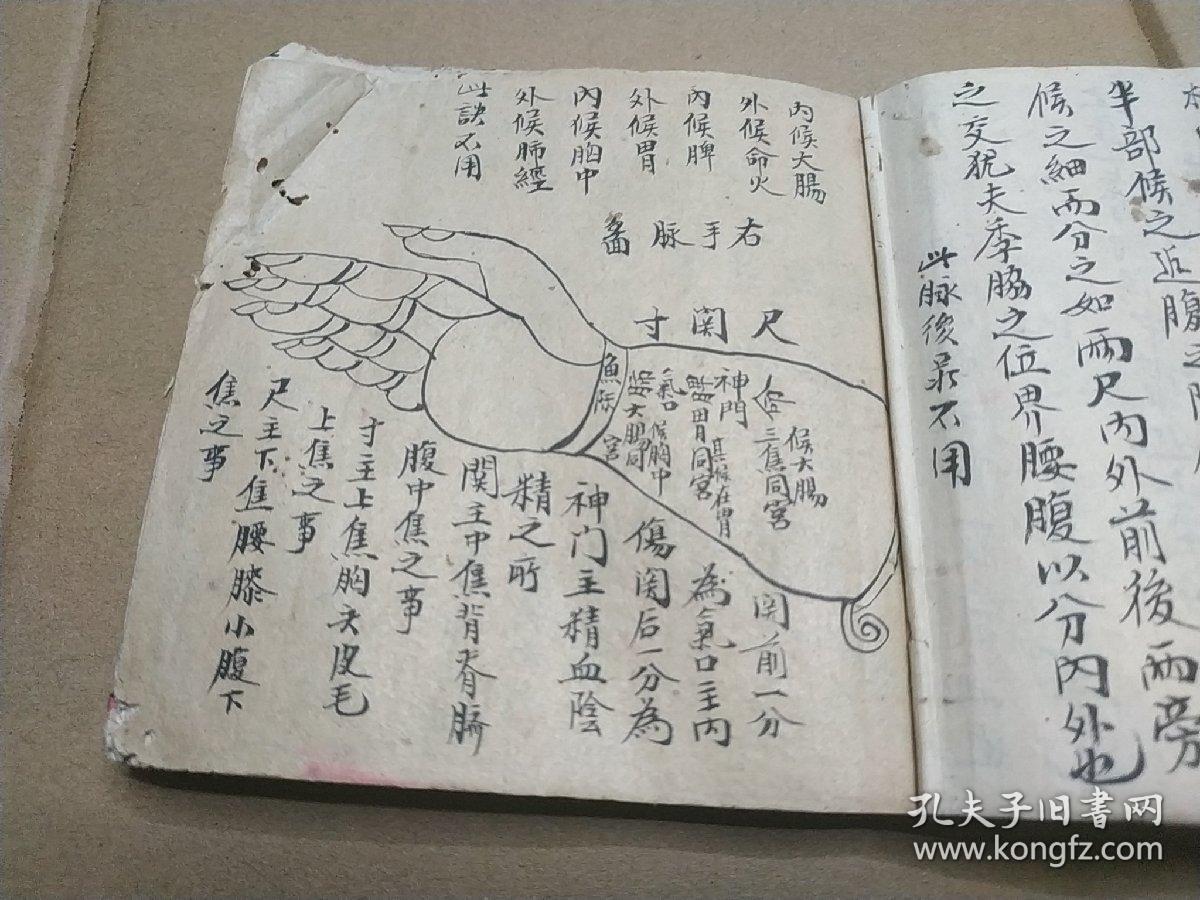 半部候之近腹之
候之細而分之如兩尺內外前後兩旁
之交犹夫季脇之位界腰腹以分內外也
此脉後录不用
內候大腸
外候命火
內候脾
外候胃
內候胸中
外候肺經
此訣不用
右手脉啚
尺
関
寸
候大腸
三焦同宮
神門
其候在胃
氣口
候胸中
与大腸同
宮
魚际
関前一分
為氣口主內
傷関后一分為
神门主精血陰
精之所
関主中焦背脊臍
腹中焦之事
寸主上焦胸头皮毛
上焦之事
尺主下焦腰膝小腹下
焦之事
孔夫子旧书网
www.kongfz.com